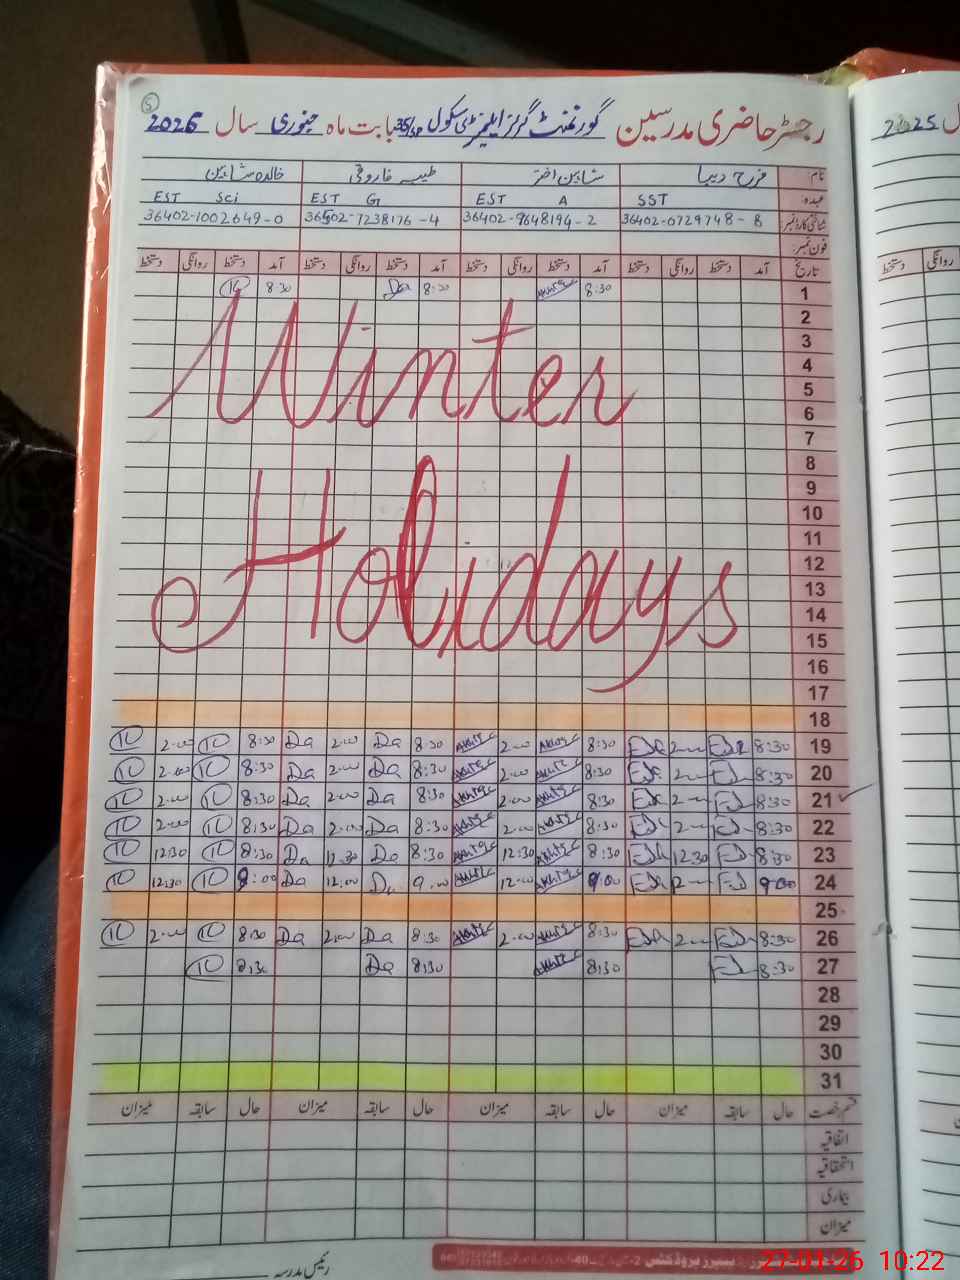 5
رجسٹر حاضری مدرسین گورنمنٹ گرلز ایلیمنٹری سکول بابت ماہ جنوری سال 2026
2025
نام: فرح دیبا شاہین اختر طیبہ فاروقی خالدہ شاہین
عہدہ: SST EST A EST G EST Sci
شناختی کارڈ نمبر 36402-6729748-8 36402-9648194-2 36502-7238176-4 36402-1002649-0
فون نمبر:
تاریخ آمد دستخط روانگی دستخط آمد دستخط روانگی دستخط آمد دستخط روانگی دستخط آمد دستخط روانگی دستخط
دستخط روانگی
1 8:30 8:30 Da 8:30
2
3
4
5
6
Winter
7
8
9
10
11
12
13
14
15
Holidays
16
17
18
19 8:30 2-00 8:30 2-00 8:30 Da 2-00 Da 8:30 2-00
20 8:30 8:30 2-00 8:30 Da 2-00 Da 8:30 2-00
21 8:30 8:30 2-00 8:30 Da 2-00 Da 8:30 2-00
22 8:30 8:30 2-00 8:30 Da 2-00 Da 8:30 2-00
23 8:30 12:30 8:30 12:30 8:30 Da 12:30 Da 8:30 12:30
24 9:00 9:00 12-00 9:00 Da 12:00 Da 9:00 12:30
25
26 8:30 8:30 2-00 8:30 Da 2:00 Da 8:30 2-00
27 8:30 8:30 8:30 Da 8:30
28
29
30
31
قسم رخصت حال سابقہ میزان حال سابقہ میزان حال سابقہ میزان حال سابقہ میزان
اتفاقیہ
استحقاقیہ
بیماری
میزان
رئیس مدرسہ
27-01-26 10:22